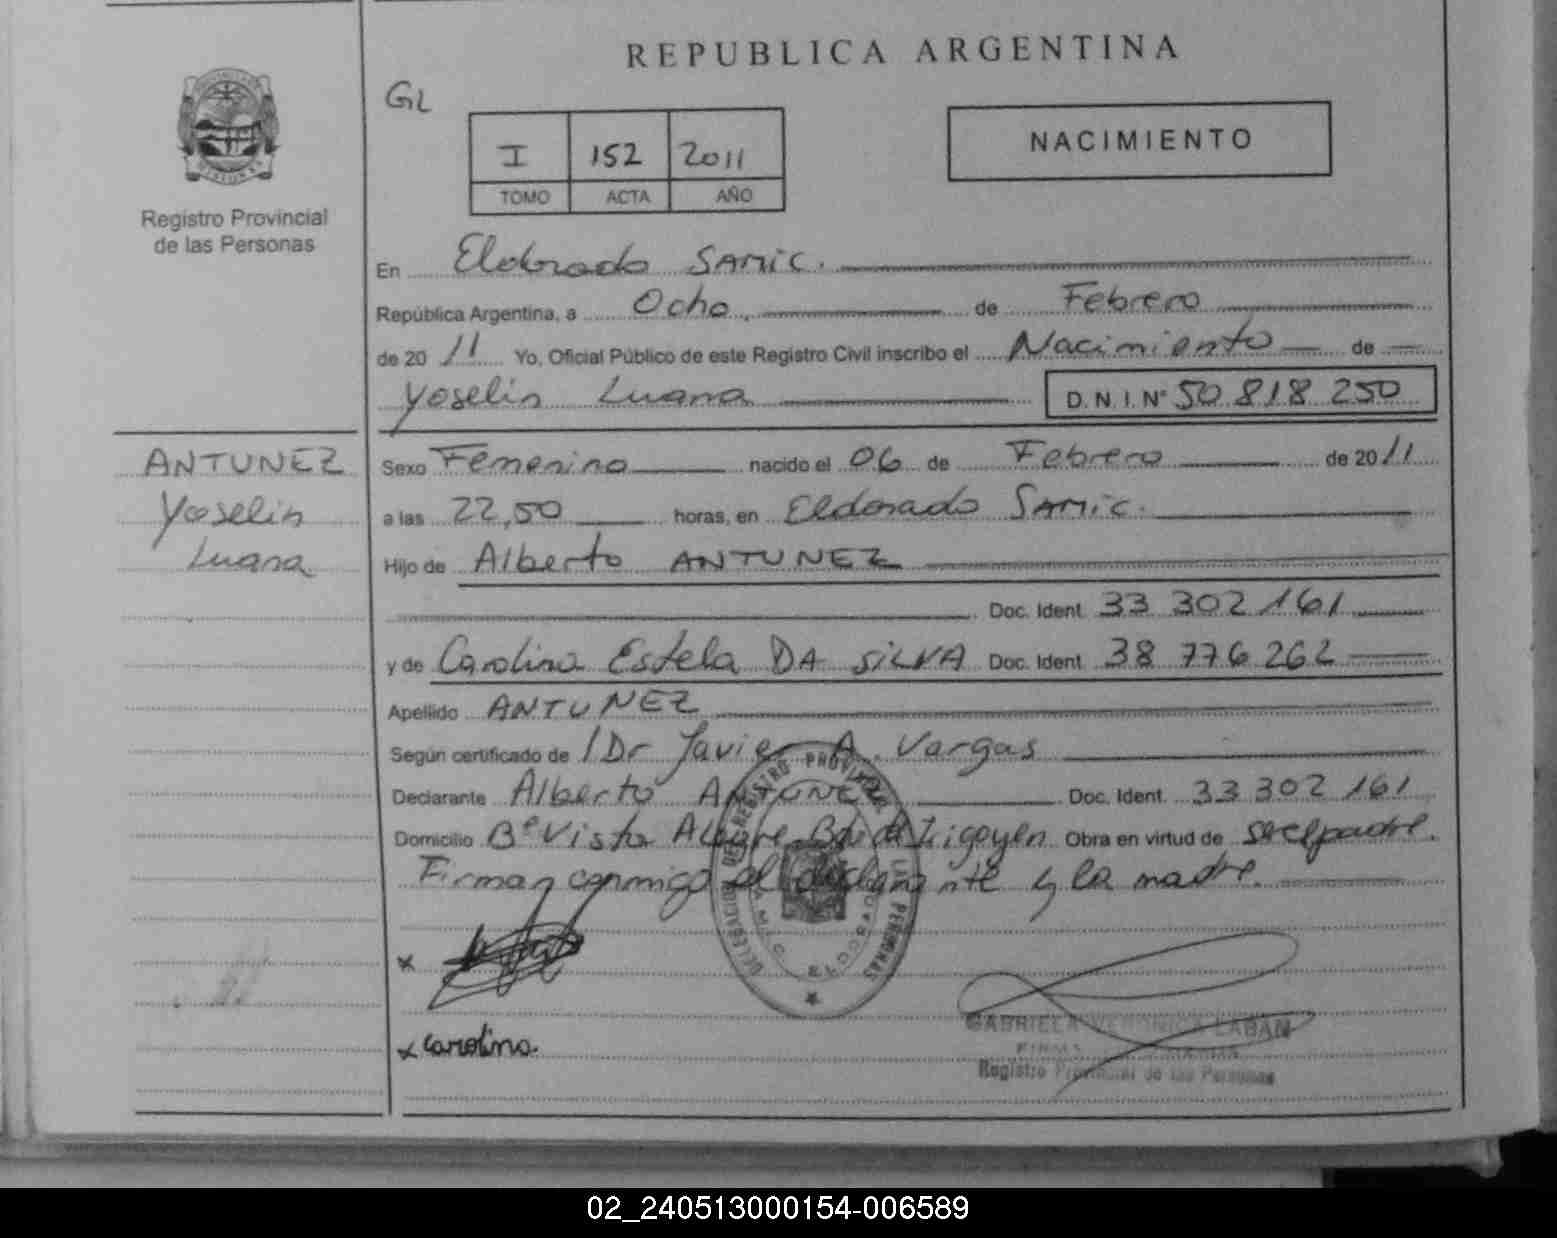 REPUBLICA ARGENTINA
GL
I 152 2011
TOMO ACTA AÑO
NACIMIENTO
Registro Provincial
de las Personas
En Eldorado SAMIC.
República Argentina, a Ocho, de Febrero
de 2011 Yo, Oficial Público de este Registro Civil inscribo el Nacimiento de
Yoselin Luana D.N.I. Nº 50 818 250
ANTUNEZ
Yoselin
Luana
Sexo Femenino nacido el 06 de Febrero de 2011
a las 22,50 horas, en Eldorado SAMIC.
Hijo de Alberto ANTUNEZ
Doc. Ident. 33 302 161
y de Carolina Estela DA SILVA Doc. Ident. 38 776 262
Apellido ANTUNEZ
Según certificado de Dr Javier A. Vargas
Declarante Alberto ANTUNEZ Doc. Ident. 33 302 161
Domicilio Bº Vista Alegre Bdo de Irigoyen Obra en virtud de ser el padre.
Firman conmigo el declarante y la madre.
x
x Carolina
DELEGACION DEL REGISTRO PROVINCIAL DE LAS PERSONAS
ELDORADO
GABRIELA VERONICA LABAN
FIRMA
Registro Provincial de las Personas
02_240513000154-006589